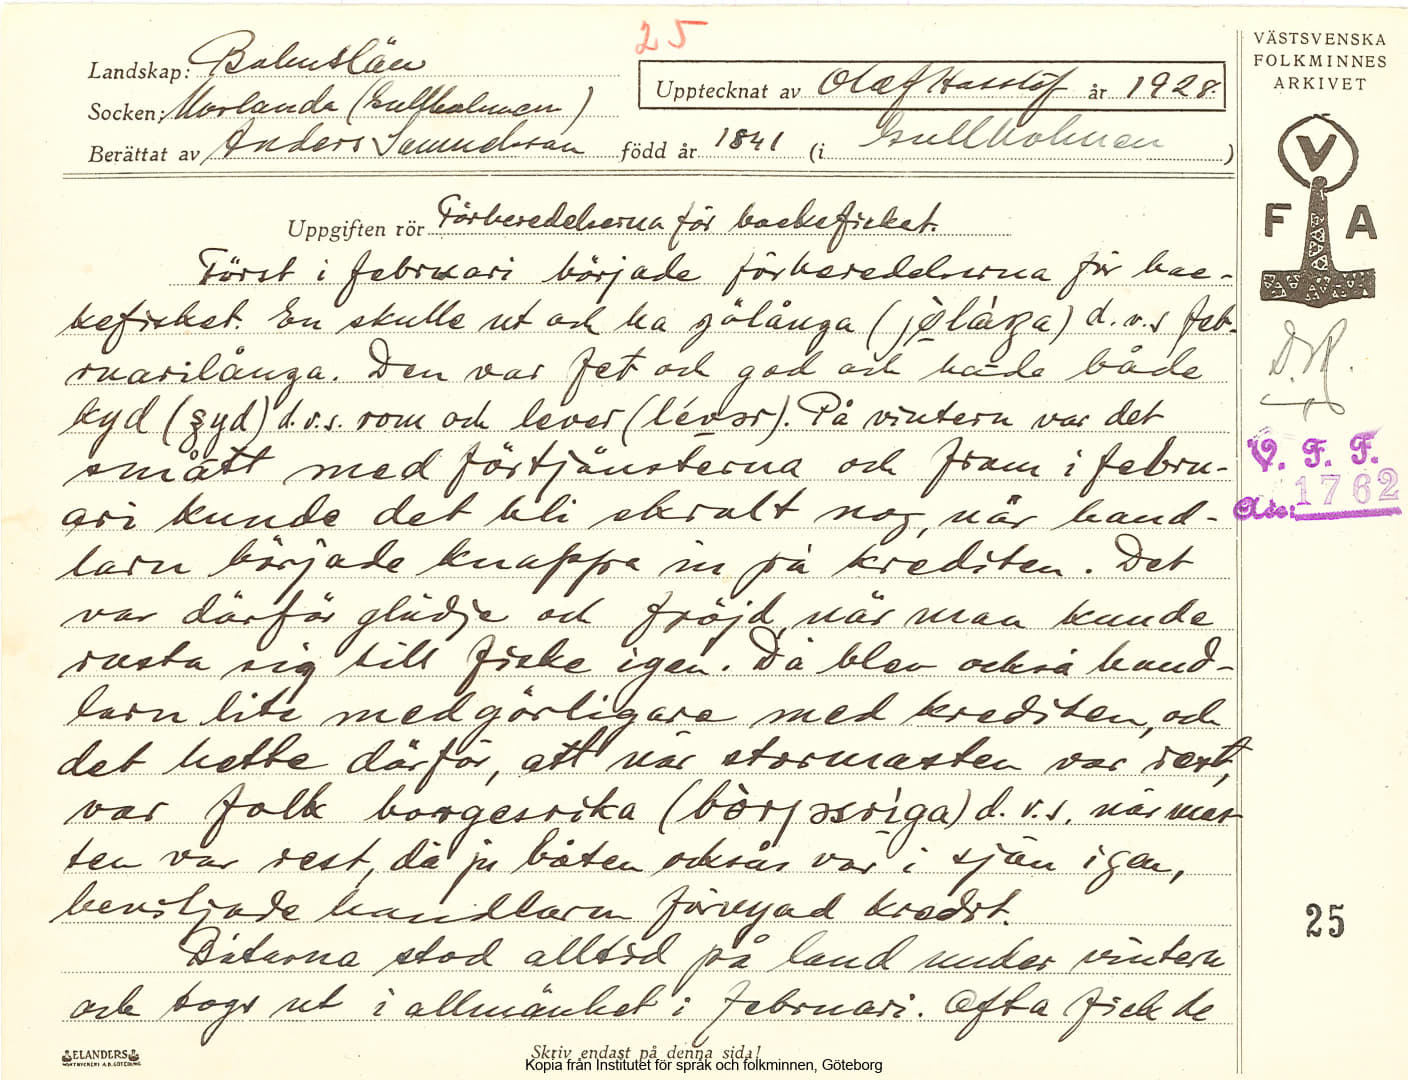 25
VÄSTSVENSKA
FOLKMINNES
ARKIVET
Landskap: Bohuslän
Upptecknat av Olof Hasslöf år 1928.
Socken: Morlanda (Gullholmen)
Berättat av Anders Samuelsson född år 1841 (i Gullholmen)
V
F A
Uppgiften rör Förberedelserna för backefisket.
Först i februari började förberedelserna för bac-
kefisket. En skulle ut och ha jölånga (jø̀låŋa) d.v.s feb-
ruarilånga. Den var fet och god och hade både
kyd (ʂyd) d.v.s. rom och lever (lévər). På vintern var det
smått med förtjänsterna och fram i febru-
ari kunde det bli skralt nog, när hand-
larn började knappa in på krediten. Det
var därför glädje och fröjd, när man kunde
rusta sig till fiske igen. Då blev också hand-
larn lite medgörligare med krediten, och
det hette därför, att när stormasten var rest,
var folk borgesrika (bòrjəsriga) d.v.s. när mas-
ten var rest, då ju båten också var i sjön igen,
beviljade handlarn förnyad kredit.
Båtarna stod alltid på land under vintern
och togs ut i allmänhet i februari. Ofta fick de
V. F. F.
Acc: 1762
25
ELANDERS
Skriv endast på denna sida!
Kopia från Institutet för språk och folkminnen, Göteborg